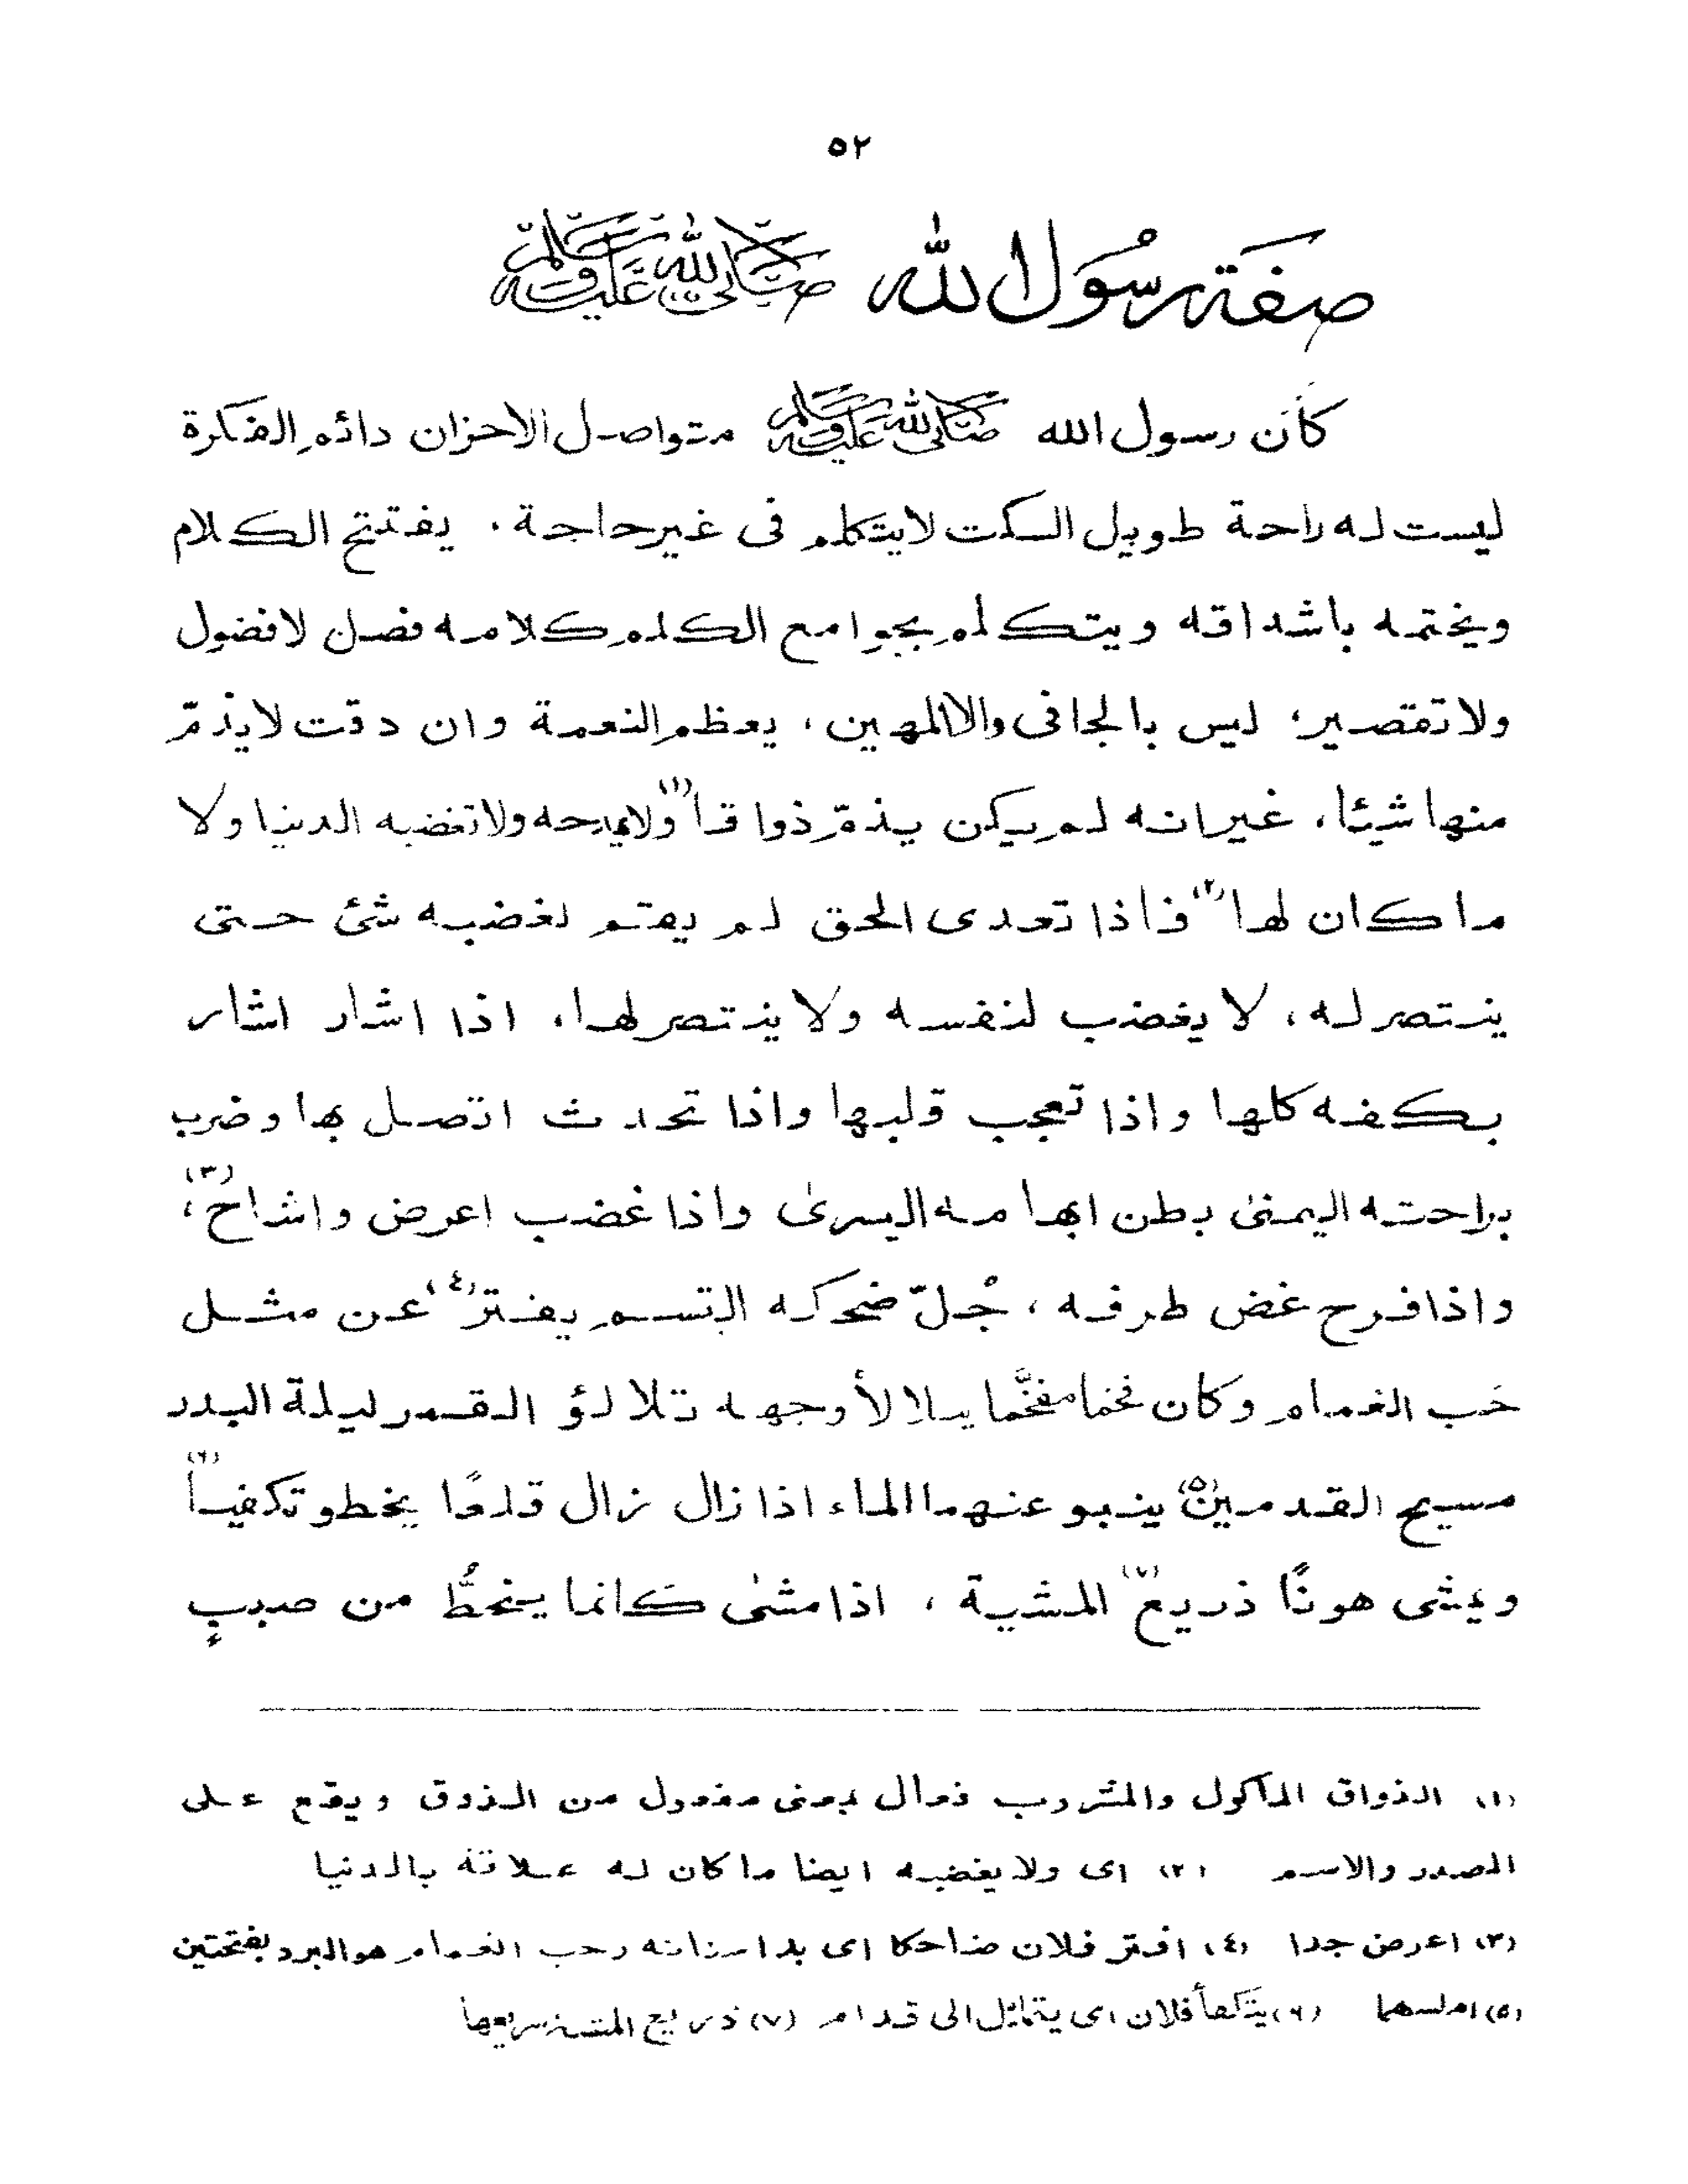 ٥٢
صفة رسول الله ﷺ
كَانَ رسول الله ﷺ متواصل الاحزان دائم الفكرة
ليست له راحة طويل السكت لايتكلم فى غير حاجة، يفتتح الكلام
ويختمه باشداقه ويتكلم بجوامع الكلم كلامه فصل لافضول
ولاتقصير، ليس بالجافى والالمهين، يعظم النعمة وان دقت لايذمّ
منها شيئا، غير انه لم يكن يذمّ ذواقا(١) ولايمدحه ولاتغضبه الدنيا ولا
ما كان لها(٢) فاذا تعدى الحق لم يقم لغضبه شئ حتى
ينتصر له، لا يغضب لنفسه ولا ينتصر لها، اذا اشار اشار
بكفه كلها واذا تعجب قلبها واذا تحدث اتصل بها وضرب
براحته اليمنىٰ بطن ابهامه اليسرىٰ واذا غضب اعرض واشاح(٣)،
واذا فرح غض طرفه، جُلّ ضحكه التبسم يفتر(٤) عن مثل
حَب الغمام وكان فخما مفخَّما يتلالأ وجهه تلالؤ القمر ليلة البدر
مسيح القدمين(٥) ينبو عنهما الماء اذا زال زال قلعًا يخطو تكفيا(٦)
ويمشى هونًا ذريع(٧) المشية، اذا مشىٰ كانما ينحطُّ من صببٍ
(١) الذواق المآكول والمشروب فعال بمعنى مفعول من الذوق ويقع على
المصدر والاسم (٢) اى ولا يغضبه ايضا ما كان له علاقة بالدنيا
(٣) اعرض جدا (٤) افتر فلان ضاحكا اى بدا سنانه وحب الغمام هو البرد بفتحتين
(٥) املسهما (٦) يتَكفأ فلان اى يتمائل الى قدام (٧) ذريع المشية سريعها